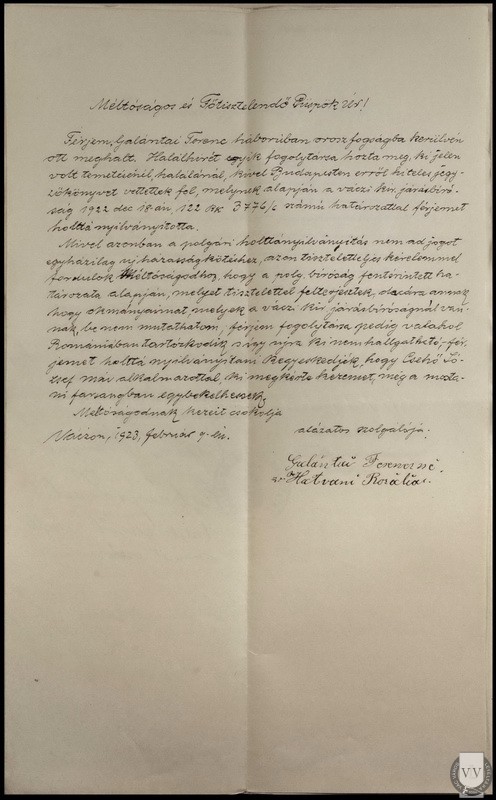 Méltóságos és Főtisztelendő Püspök Úr!
Férjem, Galántai Ferenc háborúban orosz fogságba kerülvén
ott meghalt. Halálhírét egyik fogolytársa hozta meg, ki jelen
volt temetésénél, halálánál, kivel Budapesten erről hiteles jegy-
zőkönyvet vettek fel, melynek alapján a váczi kir. járásbiró-
ság 1922 dec 18-án, 122 Pk 3776/2 számú határozattal férjemet
holttá nyilvánította.
Mivel azonban a polgári holttányilvánitás nem ad jogot
egyházilag uj házasságkötéshez, azon tiszteletteljes kérelemmel
fordulok Méltóságodhoz, hogy a polg. biróság fentérintett ha-
tározata alapján, melyet tisztelettel felterjesztek, dacára annak
hogy okmányaimat, melyek a váczi kir. járásbiróságnál van-
nak, be nem mutathatom, férjem fogolytársa pedig valahol
Romániában tartózkodik, s így ujra ki nem hallgatható, fér-
jemet holttá nyilvánítani kegyeskedjék, hogy Csekő Jó-
zsef már alkalmazottal, ki megkérte kezemet, még a mosta-
ni farsangban egybekelhessek.
Méltóságodnak kezeit csókolja
Váczon, 1923, február 9-én.
alázatos szolgálója:
Galántai Ferencné
sz. Hatvani Rozália.
VV